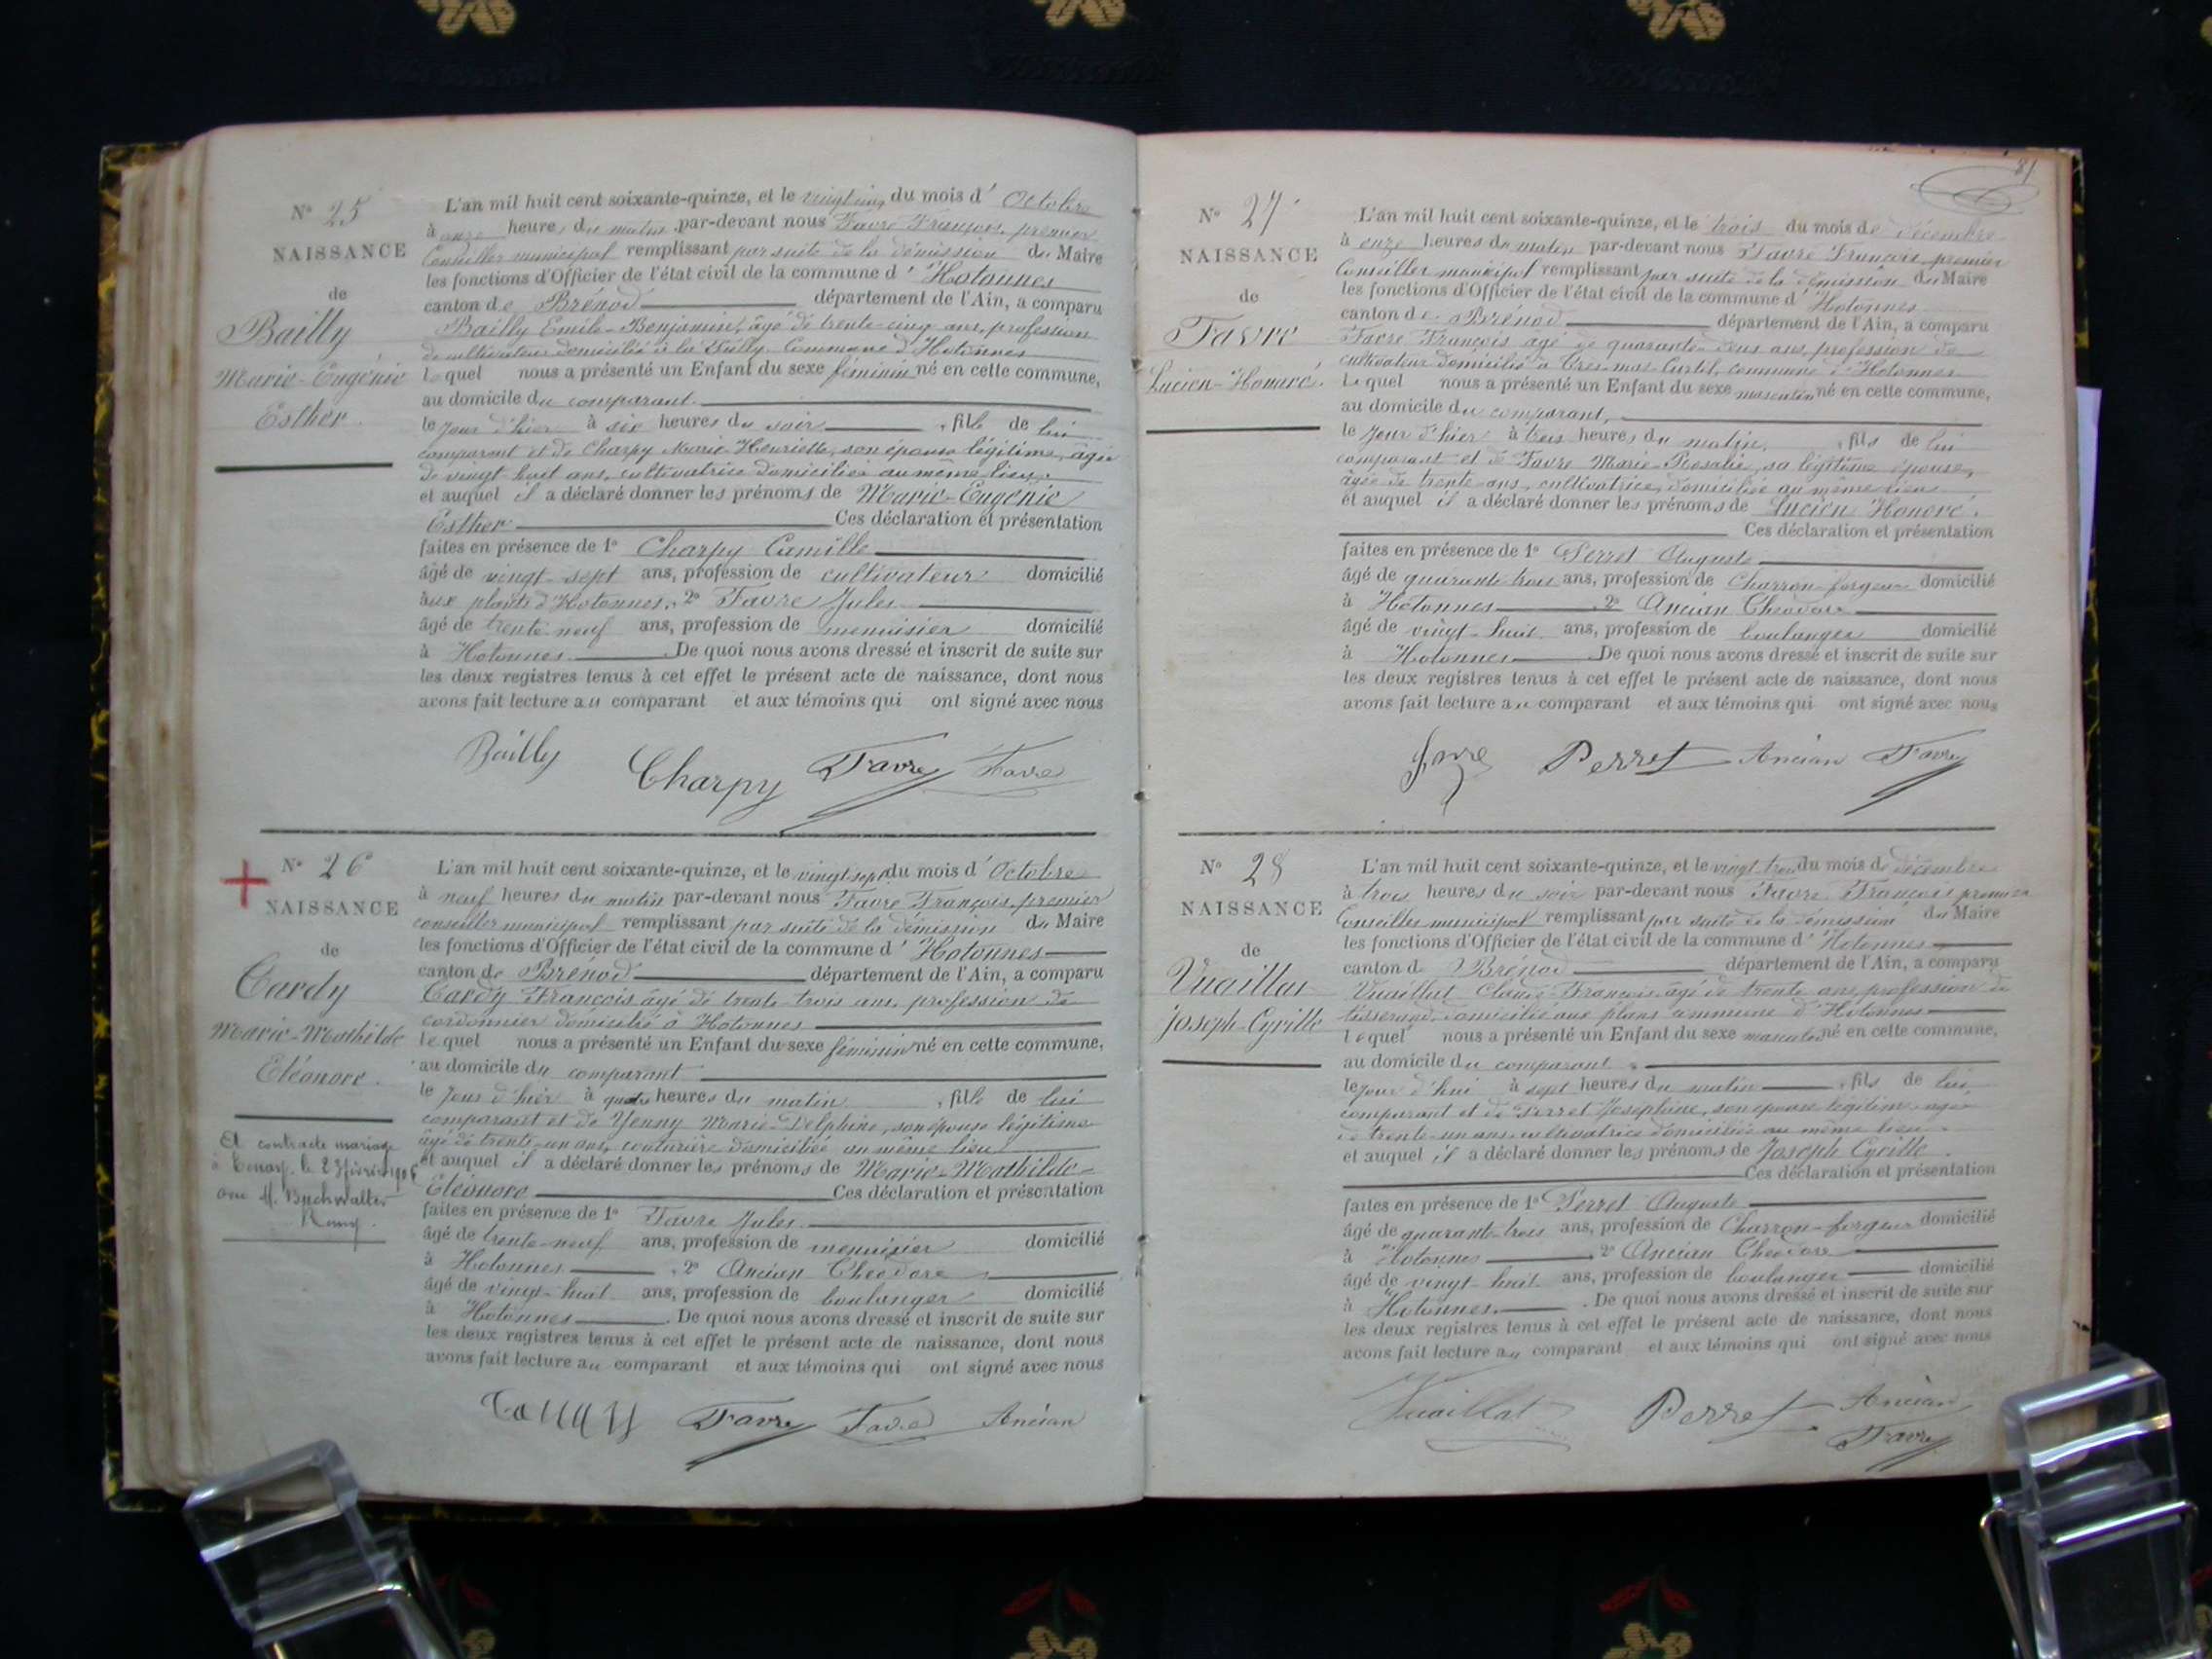 N° 25
NAISSANCE
de
Bailly
Marie-Eugénie
Esther.
L'an mil huit cent soixante-quinze, et le vingt cinq du mois d' Octobre
à onze heures du matin par-devant nous Favre François, premier
Conseiller municipal remplissant par suite de la démission du Maire
les fonctions d'Officier de l'état civil de la commune d' Hotonnes
canton de Brénod département de l'Ain, a comparu
Bailly Emile-Benjamin, âgé de trente-cinq ans, profession
de cultivateur domicilié à la commune d'Hotonnes
lequel nous a présenté un Enfant du sexe féminin né en cette commune,
au domicile du comparant.
le jour d'hier à six heures du soir, fille de lui
comparant et de Charpy Marie Henriette, son épouse légitime, âgée
de vingt-huit ans, cultivatrice domiciliée au même lieu,
et auquel il a déclaré donner les prénoms de Marie-Eugénie
Esther Ces déclaration et présentation
faites en présence de 1° Charpy Camille
âgé de vingt-sept ans, profession de cultivateur domicilié
aux plans d'Hotonnes, 2° Favre Jules
âgé de trente-neuf ans, profession de menuisier domicilié
à Hotonnes. De quoi nous avons dressé et inscrit de suite sur
les deux registres tenus à cet effet le présent acte de naissance, dont nous
avons fait lecture au comparant et aux témoins qui ont signé avec nous
Bailly Charpy Favre Favre
N° 26
NAISSANCE
de
Cardy
Marie-Mathilde
Eléonore.
A contracté mariage
à le 23 février
avec M. Buchwalter
L'an mil huit cent soixante-quinze, et le vingt sept du mois d' Octobre
à neuf heures du matin par-devant nous Favre François, premier
conseiller municipal remplissant par suite de la démission du Maire
les fonctions d'Officier de l'état civil de la commune d' Hotonnes
canton de Brénod département de l'Ain, a comparu
Cardy François âgé de trente trois ans, profession de
cordonnier domicilié à Hotonnes
lequel nous a présenté un Enfant du sexe féminin né en cette commune,
au domicile du comparant
le jour d'hier à quatre heures du matin, fille de lui
comparant et de Yenny Marie-Delphine, son épouse légitime
âgé de trente-un ans, couturière domiciliée au même lieu
et auquel il a déclaré donner les prénoms de Marie-Mathilde-
Eléonore Ces déclaration et présentation
faites en présence de 1° Favre Jules
âgé de trente-neuf ans, profession de menuisier domicilié
à Hotonnes, 2° Ancian Théodore
âgé de vingt-huit ans, profession de boulanger domicilié
à Hotonnes. De quoi nous avons dressé et inscrit de suite sur
les deux registres tenus à cet effet le présent acte de naissance, dont nous
avons fait lecture au comparant et aux témoins qui ont signé avec nous
Favre Favre Ancian
81
N° 27
NAISSANCE
de
Favre
Lucien-Honoré.
L'an mil huit cent soixante-quinze, et le trois du mois de décembre
à onze heures du matin par-devant nous Favre François, premier
Conseiller municipal remplissant par suite de la démission du Maire
les fonctions d'Officier de l'état civil de la commune d' Hotonnes
canton de Brénod département de l'Ain, a comparu
Favre François âgé de quarante-deux ans, profession de
cultivateur domicilié à commune d'Hotonnes
lequel nous a présenté un Enfant du sexe masculin né en cette commune,
au domicile du comparant,
le jour d'hier à trois heures du matin, fils de lui
comparant et de Favre Marie-Rosalie, sa légitime épouse,
âgée de trente ans, cultivatrice, domiciliée au même lieu
et auquel il a déclaré donner les prénoms de Lucien Honoré.
Ces déclaration et présentation
faites en présence de 1° Perret Auguste
âgé de quarante-trois ans, profession de Charron-forgeur domicilié
à Hotonnes, 2° Ancian Théodore
âgé de vingt-huit ans, profession de boulanger domicilié
à Hotonnes De quoi nous avons dressé et inscrit de suite sur
les deux registres tenus à cet effet le présent acte de naissance, dont nous
avons fait lecture au comparant et aux témoins qui ont signé avec nous
Favre Perret Ancian Favre
N° 28
NAISSANCE
de
Vuaillat
Joseph-Cyrille
L'an mil huit cent soixante-quinze, et le vingt-trois du mois de décembre
à trois heures du soir par-devant nous Favre François premier
Conseiller municipal remplissant par suite de la démission du Maire
les fonctions d'Officier de l'état civil de la commune d' Hotonnes
canton d Brénod département de l'Ain, a comparu
Vuaillat Claude-François âgé de trente ans, profession de
tisserand, domicilié aux plans commune d'Hotonnes
lequel nous a présenté un Enfant du sexe masculin né en cette commune,
au domicile du comparant
le jour d'hui à sept heures du matin, fils de lui
comparant et de Perret Joséphine, son épouse légitime âgée
de trente-un ans, cultivatrice domiciliée au même lieu.
et auquel il a déclaré donner les prénoms de Joseph Cyrille.
Ces déclaration et présentation
faites en présence de 1° Perret Auguste
âgé de quarante-trois ans, profession de Charron-forgeur domicilié
à Hotonnes, 2° Ancian Théodore
âgé de vingt-huit ans, profession de boulanger domicilié
à Hotonnes. De quoi nous avons dressé et inscrit de suite sur
les deux registres tenus à cet effet le présent acte de naissance, dont nous
avons fait lecture au comparant et aux témoins qui ont signé avec nous
Vuaillat Perret Ancian
Favre